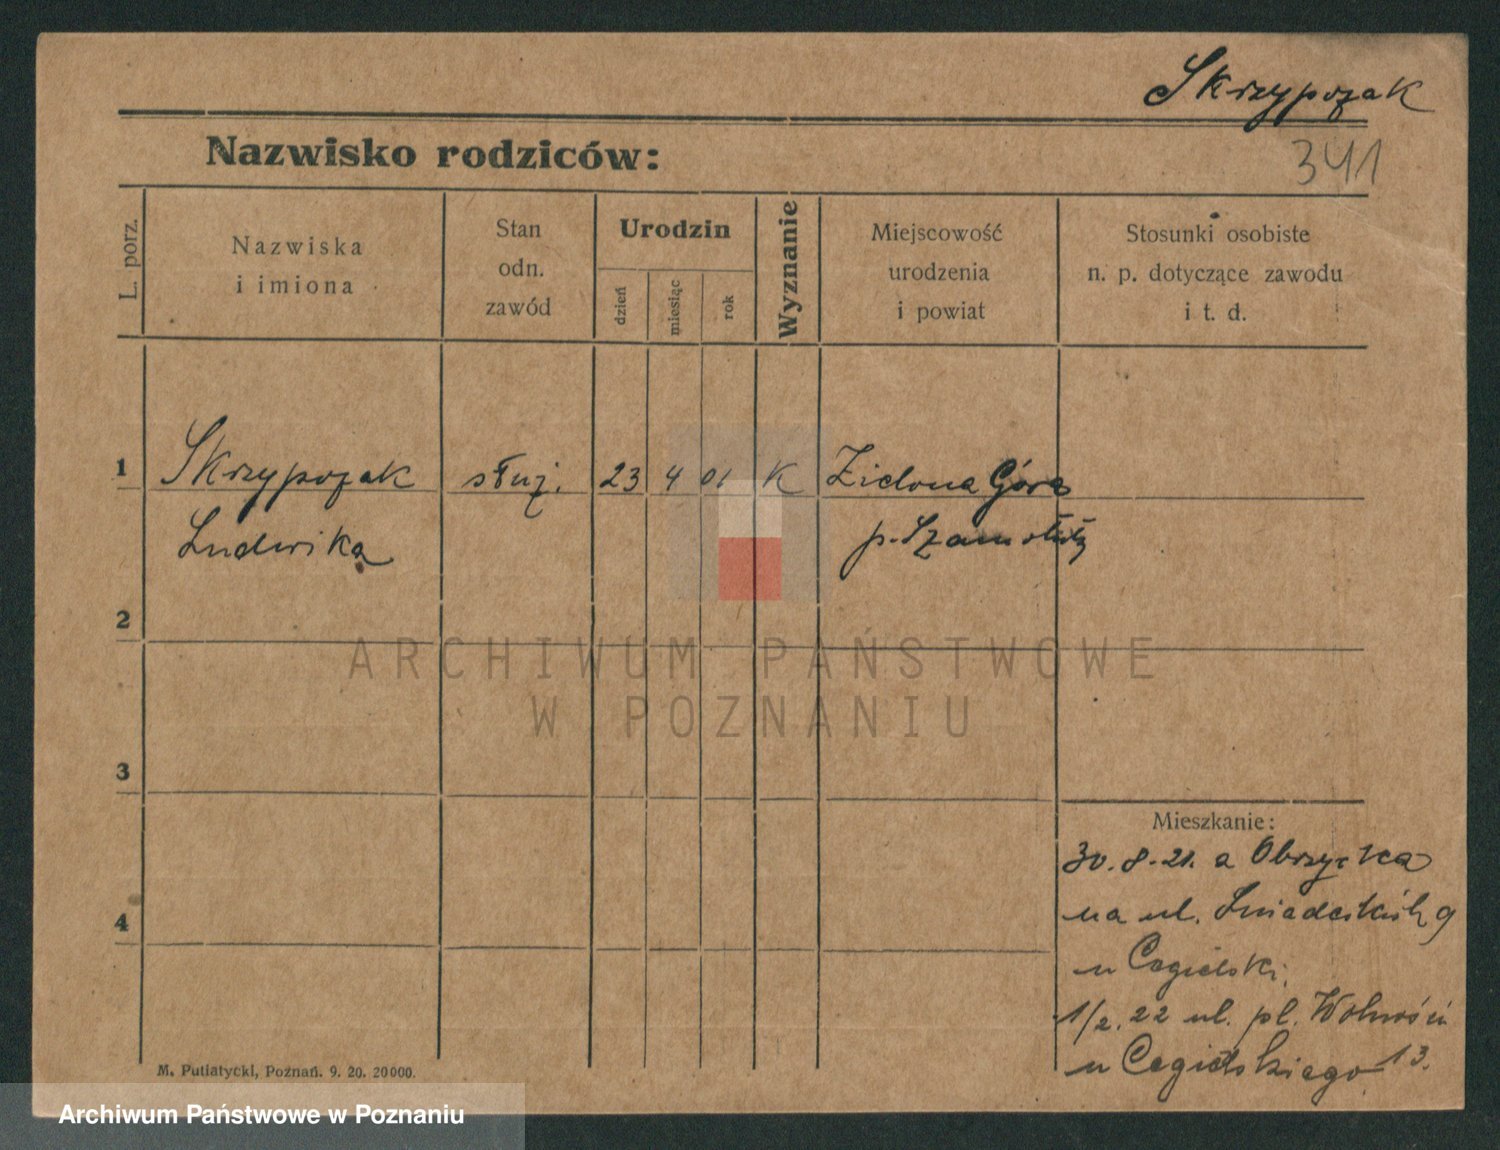 Skrzypczak
341
Nazwisko rodziców:
L. porz.
Nazwiska
i imiona
Stan
odn.
zawód
Urodzin
dzień
miesiąc
rok
Wyznanie
Miejscowość
urodzenia
i powiat
Stosunki osobiste
n. p. dotyczące zawodu
i t. d.
1 Skrzypczak służ. 23 4 01 K Zielona Góra
Ludwika p. Szamotuły
2
ARCHIWUM PAŃSTWOWE
W POZNANIU
3
4
Mieszkanie:
30.8.21. a Obrzycka
na ul. Śniadeckich 9
u Cegielski
1/2.22 ul. pl. Wolności
u Cegielskiego 13.
M. Putiatycki, Poznań. 9. 20. 20000.
Archiwum Państwowe w Poznaniu